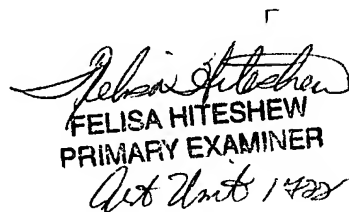 Felisa Hiteshew
FELISA HITESHEW
PRIMARY EXAMINER
Art Unit 1722